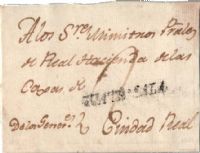 A los S.res Ministros Prales
de Real Hacienda de las
Caxas de
GUATEMALA
Ciudad Real